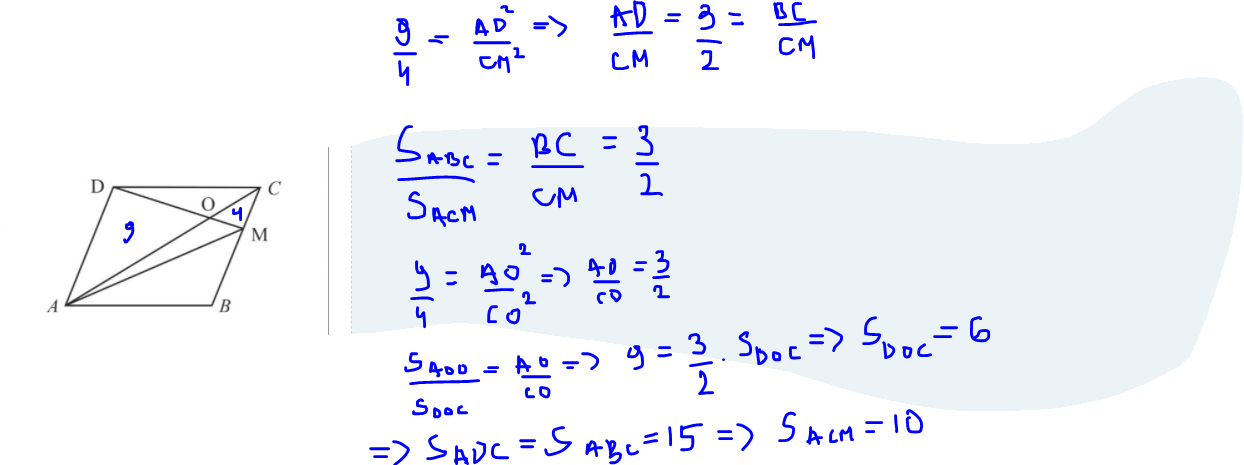 9/4 = AD²/CM² => AD/CM = 3/2 = BC/CM
S_ABC/S_ACM = BC/CM = 3/2
D
C
O
4
M
9
A
B
9/4 = AO²/CO² => AO/CO = 3/2
S_AOD/S_DOC = AO/CO => 9 = 3/2 . S_DOC => S_DOC = 6
=> S_ADC = S_ABC = 15 => S_ACM = 10